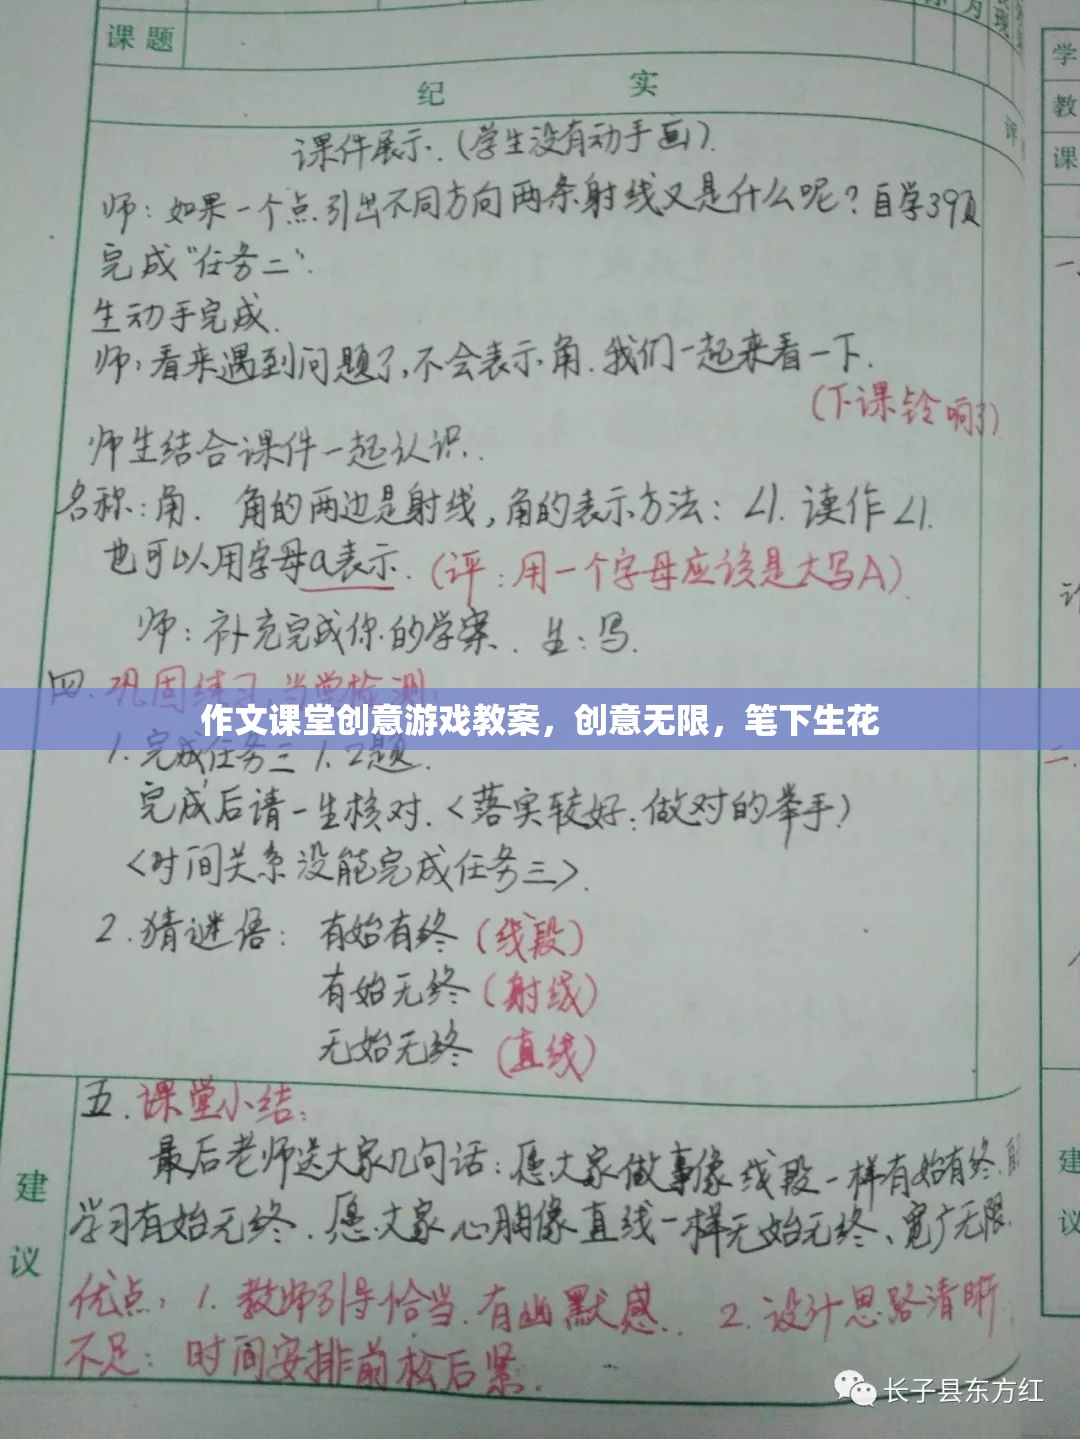 课题
纪 实
课件展示.(学生没有动手画).
师:如果一个点引出不同方向两条射线又是什么呢?自学39页
完成“任务二”.
生动手完成.
师:看来遇到问题了,不会表示角.我们一起来看一下.
(下课铃响了)
师生结合课件一起认识.
名称:角. 角的两边是射线,角的表示方法:∠1. 读作∠1.
也可以用字母a表示.(评:用一个字母应该是大写A).
师:补充完成你的学案. 生:写.
四.巩固练习,当堂检测:
作文课堂创意游戏教案,创意无限,笔下生花
1.完成任务三 1.2题.
完成后请一生核对.<落实较好:做对的举手)
<时间关系没能完成任务三>.
2.猜谜语: 有始有终(线段)
有始无终(射线)
无始无终(直线)
五.课堂小结:
最后老师送大家几句话:愿大家做事像线段一样有始有终.
学习有始无终.愿大家心胸像直线一样无始无终、宽广无限.
建
议
优点:1.教师引导恰当.有幽默感. 2.设计思路清晰
不足:时间安排前松后紧.
学
教
课
一.
二.
建
议
长子县东方红